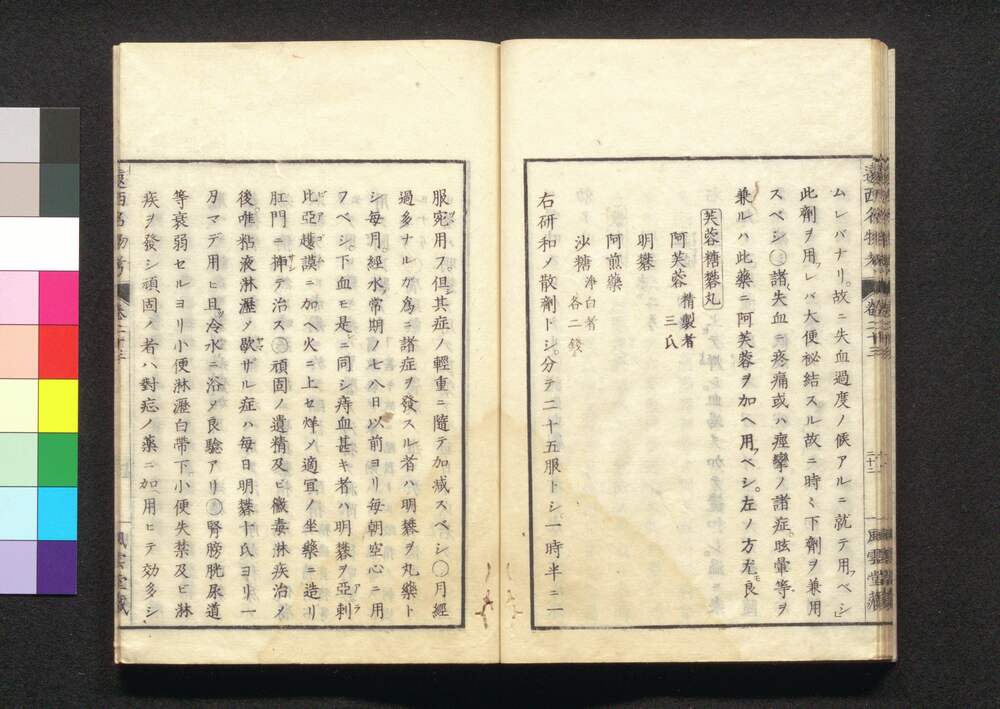 ムレバナリ。故ニ失血過度ノ候アルニ就テ用フベシ」
此劑ヲ用フレバ大便秘結スル故ニ時〻下劑ヲ兼用
スベシ○諸失血、疼痛或ハ痙攣ノ諸症。眩暈等ヲ
兼ルハ此藥ニ阿芙蓉ヲ加ヘ用フベシ。左ノ方尤モ良
芙蓉糖礬丸
阿芙蓉 精製者 三氏
明礬
阿煎藥
沙糖 淨白者 各二錢
右研和ノ散劑トシ。分テ二十五服トシ。一時半ニ一
服宛用フ。但其症ノ輕重ニ隨テ加減スベシ○月經
過多ナルガ爲ニ諸症ヲ發スル者ハ明礬ヲ丸藥ト
シ毎月經水常期ノ七八日以前ヨリ毎朝空心ニ用
フベシ下血モ是ニ同シ痔血甚キ者ハ明礬ヲ亞剌
比亞護謨ニ加ヘ火ニ上セ烊メ適宜ノ坐藥ニ造リ
肛門ニ挿テ治ス○頑固ノ遺精及ビ黴毒淋疾治メ
後唯粘液淋瀝ノ歇ザル症ハ毎日明礬十氏ヨリ一
刄マデ用ヒ且冷水ニ浴メ良驗アリ○腎膀胱尿道
等衰弱セルヨリ小便淋瀝白帶下小便失禁及ビ淋
疾ヲ發シ頑固ノ者ハ對症ノ藥ニ加用ヒテ効多シ、
遠西名物考 卷二十三
風雲堂藏